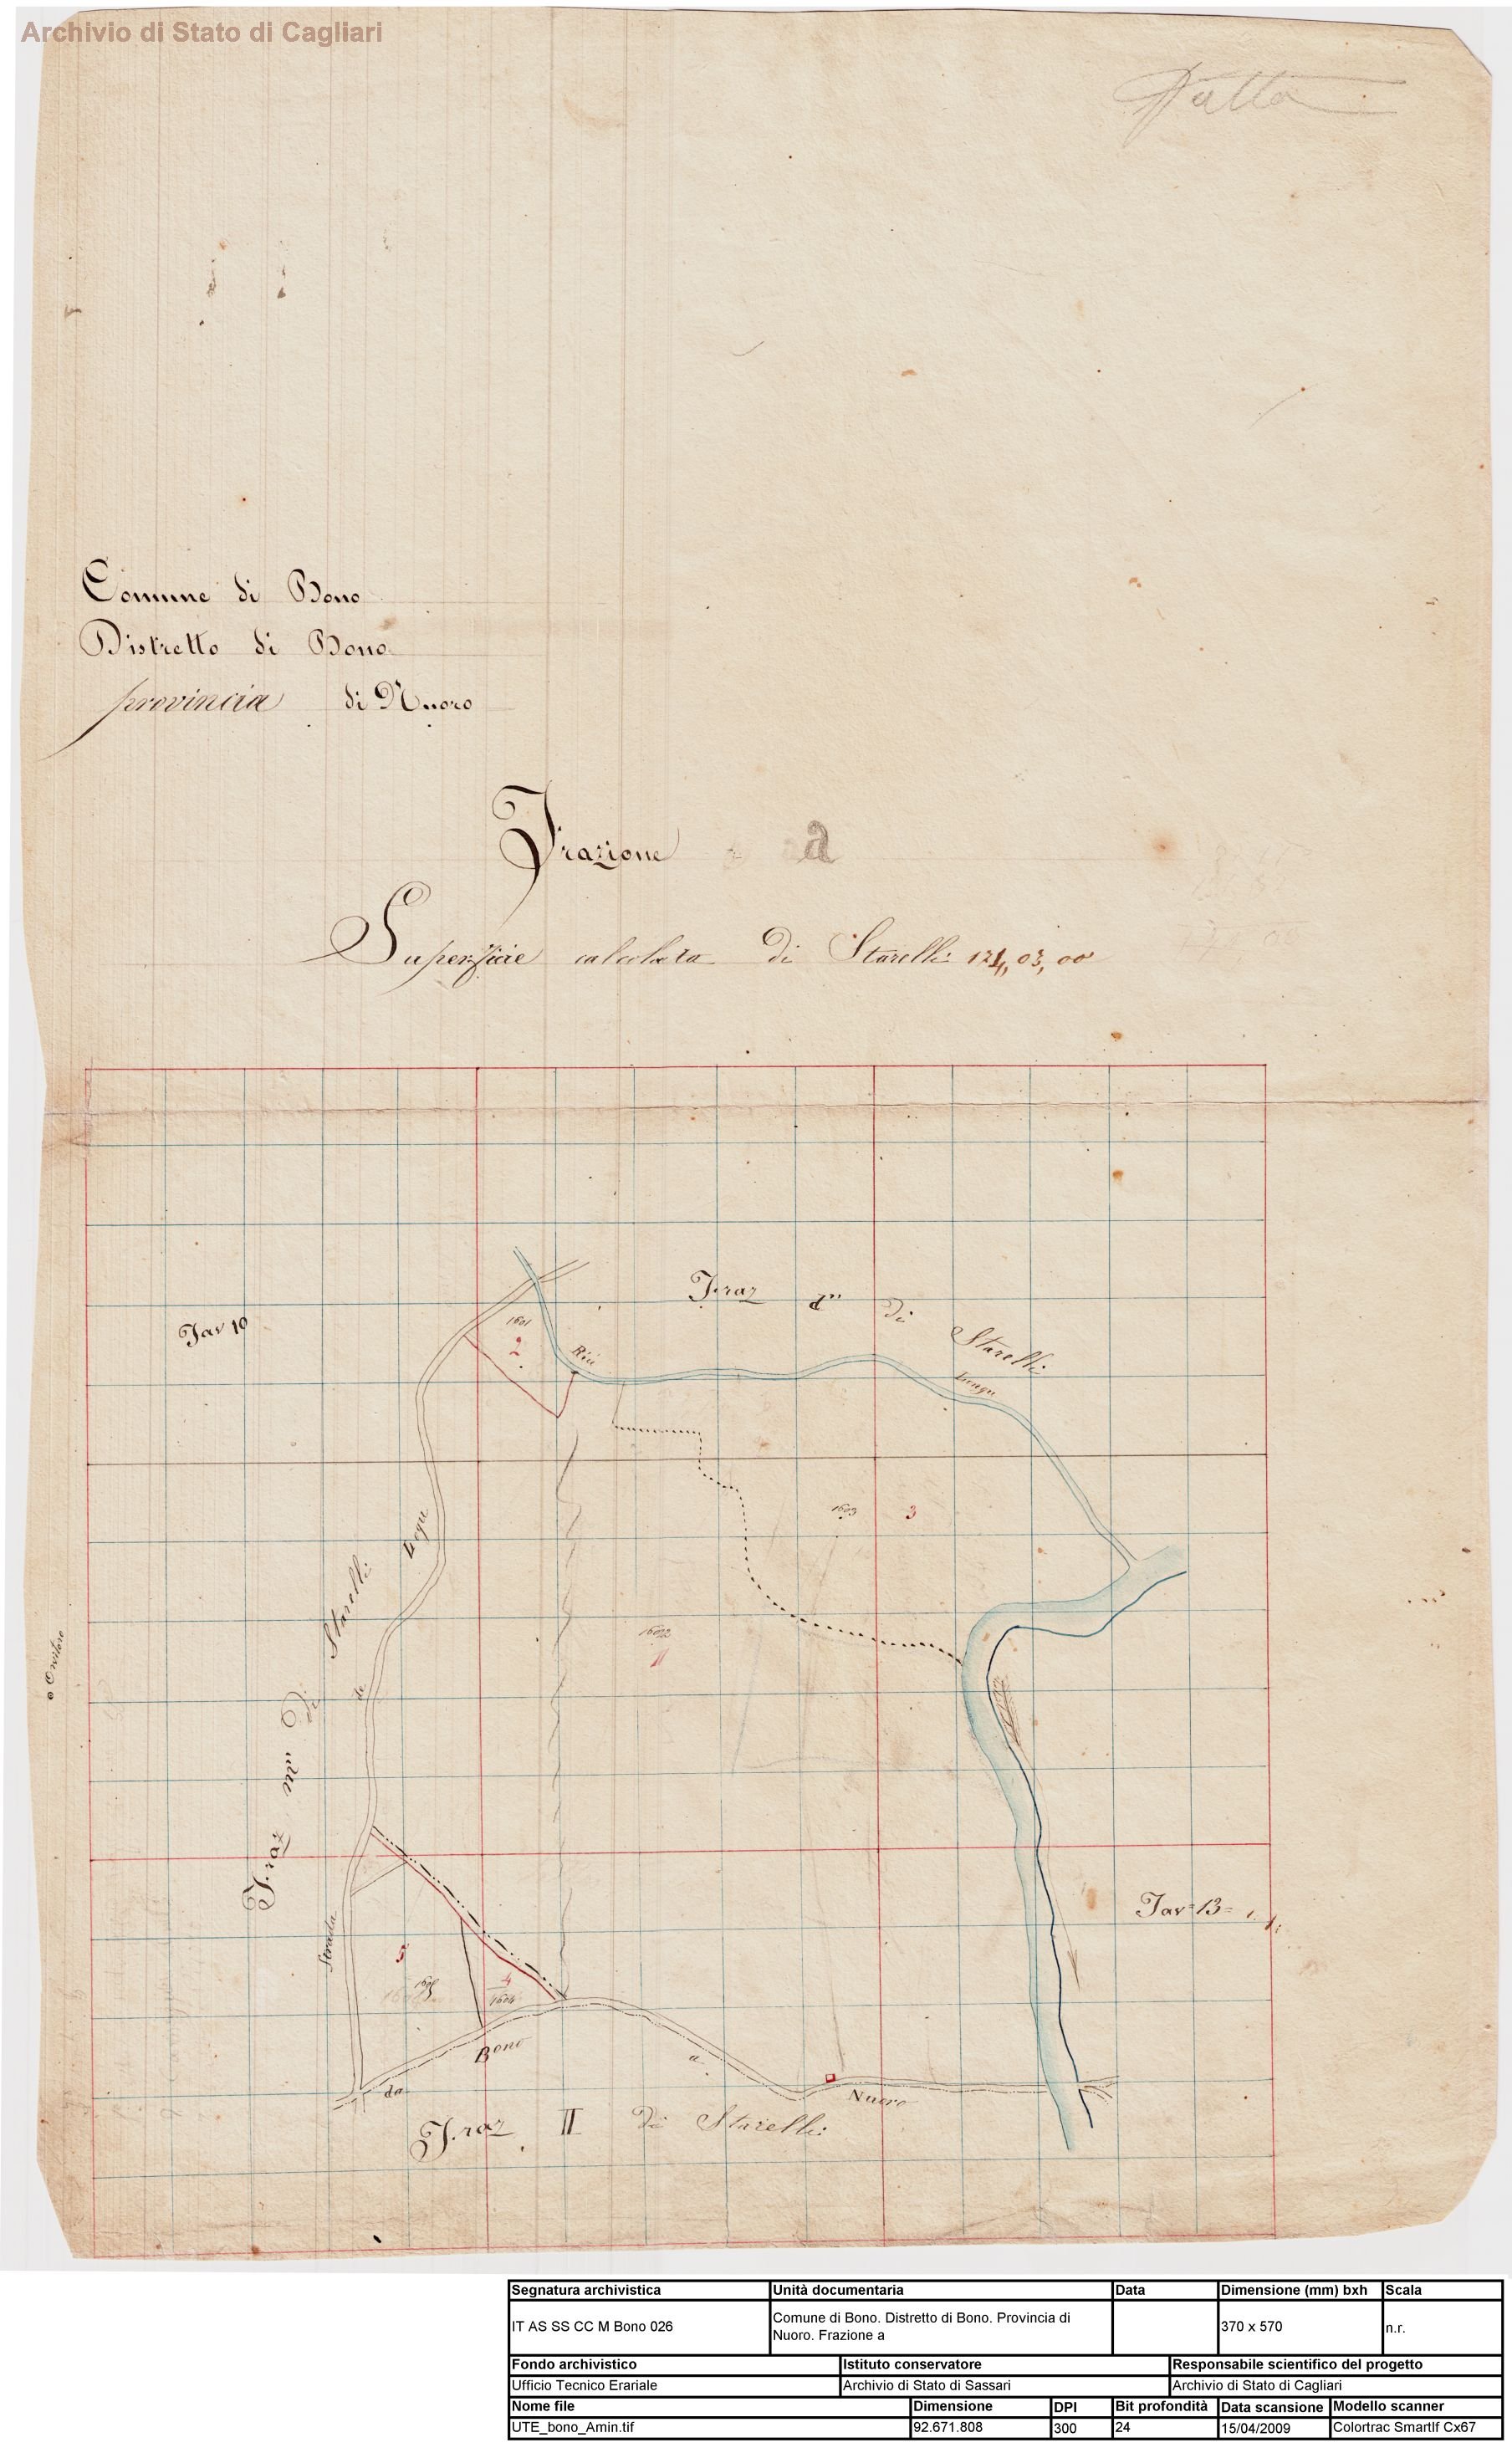 Archivio di Stato di Cagliari
Fatta
Comune di Bono
Distretto di Bono
provincia di Nuoro
Frazione a
Superficie calcolata di Starelli 124, 03, 00
Tav 10
Fraz d'' di Starelli
1601
2
Riu Longu
1603 3
1602
1
Fraz m'' di Starelli
Strada de Logu
Tav 13
5
1605
4
1604
da Bono a Nuoro
Fraz II di Starelli
Segnatura archivistica Unità documentaria Data Dimensione (mm) bxh Scala
IT AS SS CC M Bono 026 Comune di Bono. Distretto di Bono. Provincia di Nuoro. Frazione a 370 x 570 n.r.
Fondo archivistico Istituto conservatore Responsabile scientifico del progetto
Ufficio Tecnico Erariale Archivio di Stato di Sassari Archivio di Stato di Cagliari
Nome file Dimensione DPI Bit profondità Data scansione Modello scanner
UTE_bono_Amin.tif 92.671.808 300 24 15/04/2009 Colortrac Smartlf Cx67